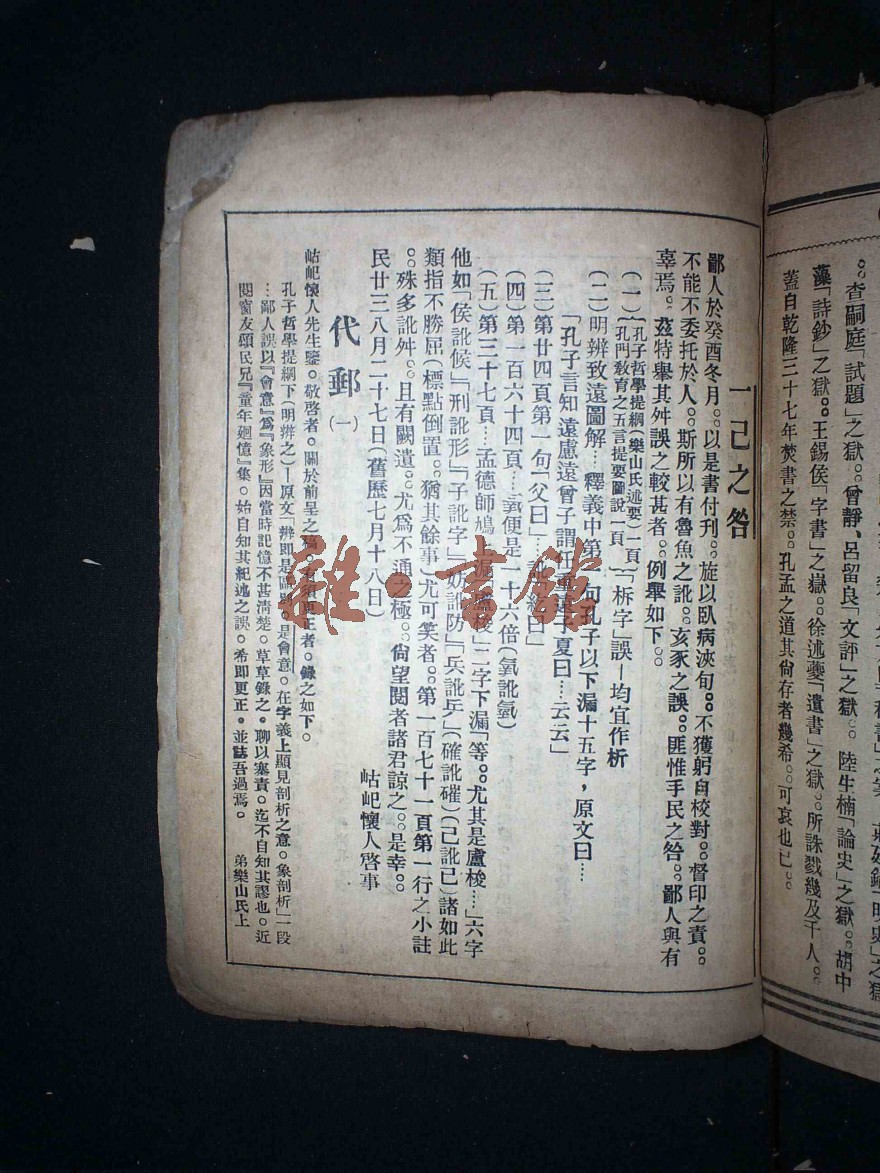 。。查嗣庭「試題」之獄。。曾靜、呂留良「文評」之獄。。陸生楠「論史」之獄。。胡中
藻「詩鈔」之獄。。王錫侯「字書」之嶽。。徐述夔「遺書」之獄。。所誅戮幾及千人。。
蓋自乾隆三十七年焚書之禁。。孔孟之道其尙存者幾希。。可哀也已。。
一己之咎
鄙人於癸酉冬月。。以是書付刊。。旋以臥病浹旬。。不獲躬自校對。。督印之責。。
不能不委托於人。。斯所以有魯魚之訛。。亥豕之誤。。匪惟手民之咎。。鄙人與有
辜焉。。茲特舉其舛誤之較甚者。。例舉如下。。
(一)(孔子哲學提綱(樂山氏述要)一頁)
(孔門敎育之五言提要圖說一頁)「柝字」誤—均宜作析
(二)明辨致遠圖解…釋義中第 句孔子以下漏十五字,原文曰…
「孔子言知遠慮遠曾子謂任重道 子夏曰…云云」
(三)第廿四頁第一句「父曰」…訛 曰」
(四)第一百六十四頁…氧便是一十六倍(氧訛氫)
(五)第三十七頁…孟德師鳩 盧梭」二字下漏「等。。尤其是盧梭…」六字
他如「侯訛候」「刑訛形」「子訛字」「妨訛防」「兵訛乒」(確訛磪)(己訛已)諸如此
類指不勝屈(標點倒置。。猶其餘事)尤可笑者。。第一百七十一頁第一行之小註
。。殊多訛舛。。且有闕遺。。尤爲不通之極。。尙望閱者諸君諒之。。是幸。。
民廿三八月二十七日(舊歷七月十八日)
岵屺懷人啓事
代郵(一)
岵屺懷人先生鑒。敬啓者。關於前呈之稿。有須更正者。錄之如下。
孔子哲學提綱下(明辨之)—原文「辨即是 。是會意。在字義上顯見剖析之意。象剖析」一段
…鄙人誤以『會意』爲『象形』因當時記憶不甚淸楚。草草錄之。聊以塞責。迄不自知其謬也。近
閱窗友頌民兄『童年廻憶』集。始自知其紀述之誤。希即更正。並誌吾過焉。
弟樂山氏上
雜·書館